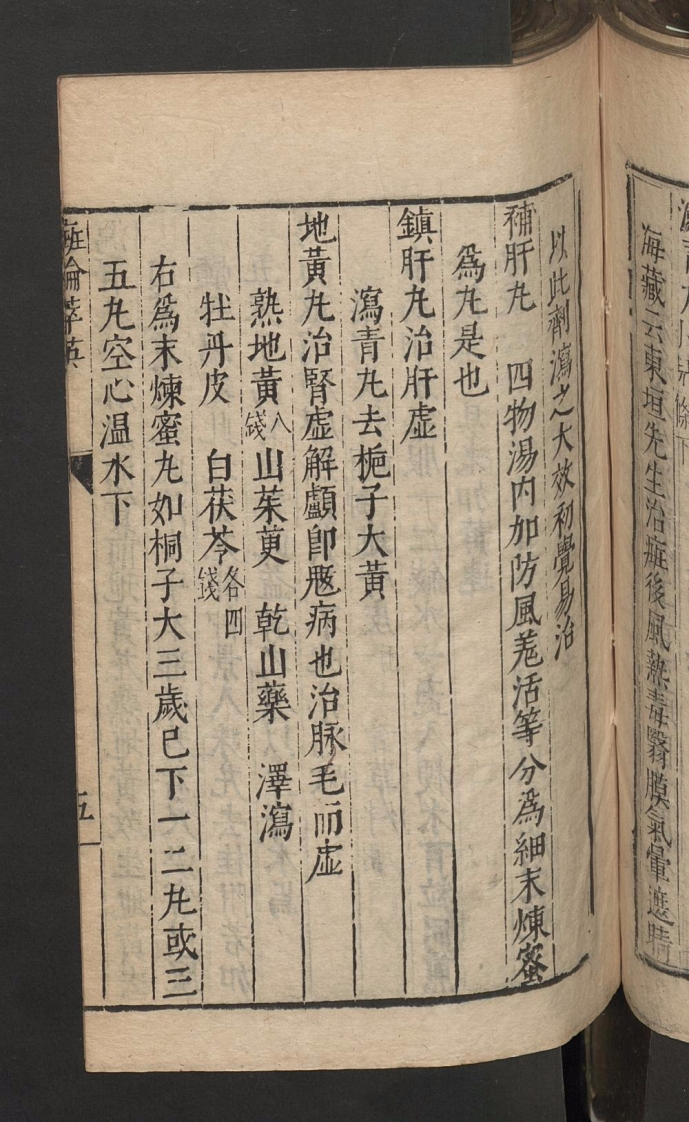 海藏云東垣先生治㾮後風熱毒翳膜氣暈遮睛
以此劑瀉之大效初覺易治
補肝丸　四物湯內加防風羌活等分爲細末煉蜜
爲丸是也
鎮肝丸治肝虛
瀉青丸去梔子大黃
地黃丸治腎虛解顱卽魘病也治脉毛而虛
熟地黃八錢　山茱萸　乾山藥　澤瀉
牡丹皮　白茯苓各四錢
右爲末煉蜜丸如桐子大三歲已下一二丸或三
五丸空心温水下
五